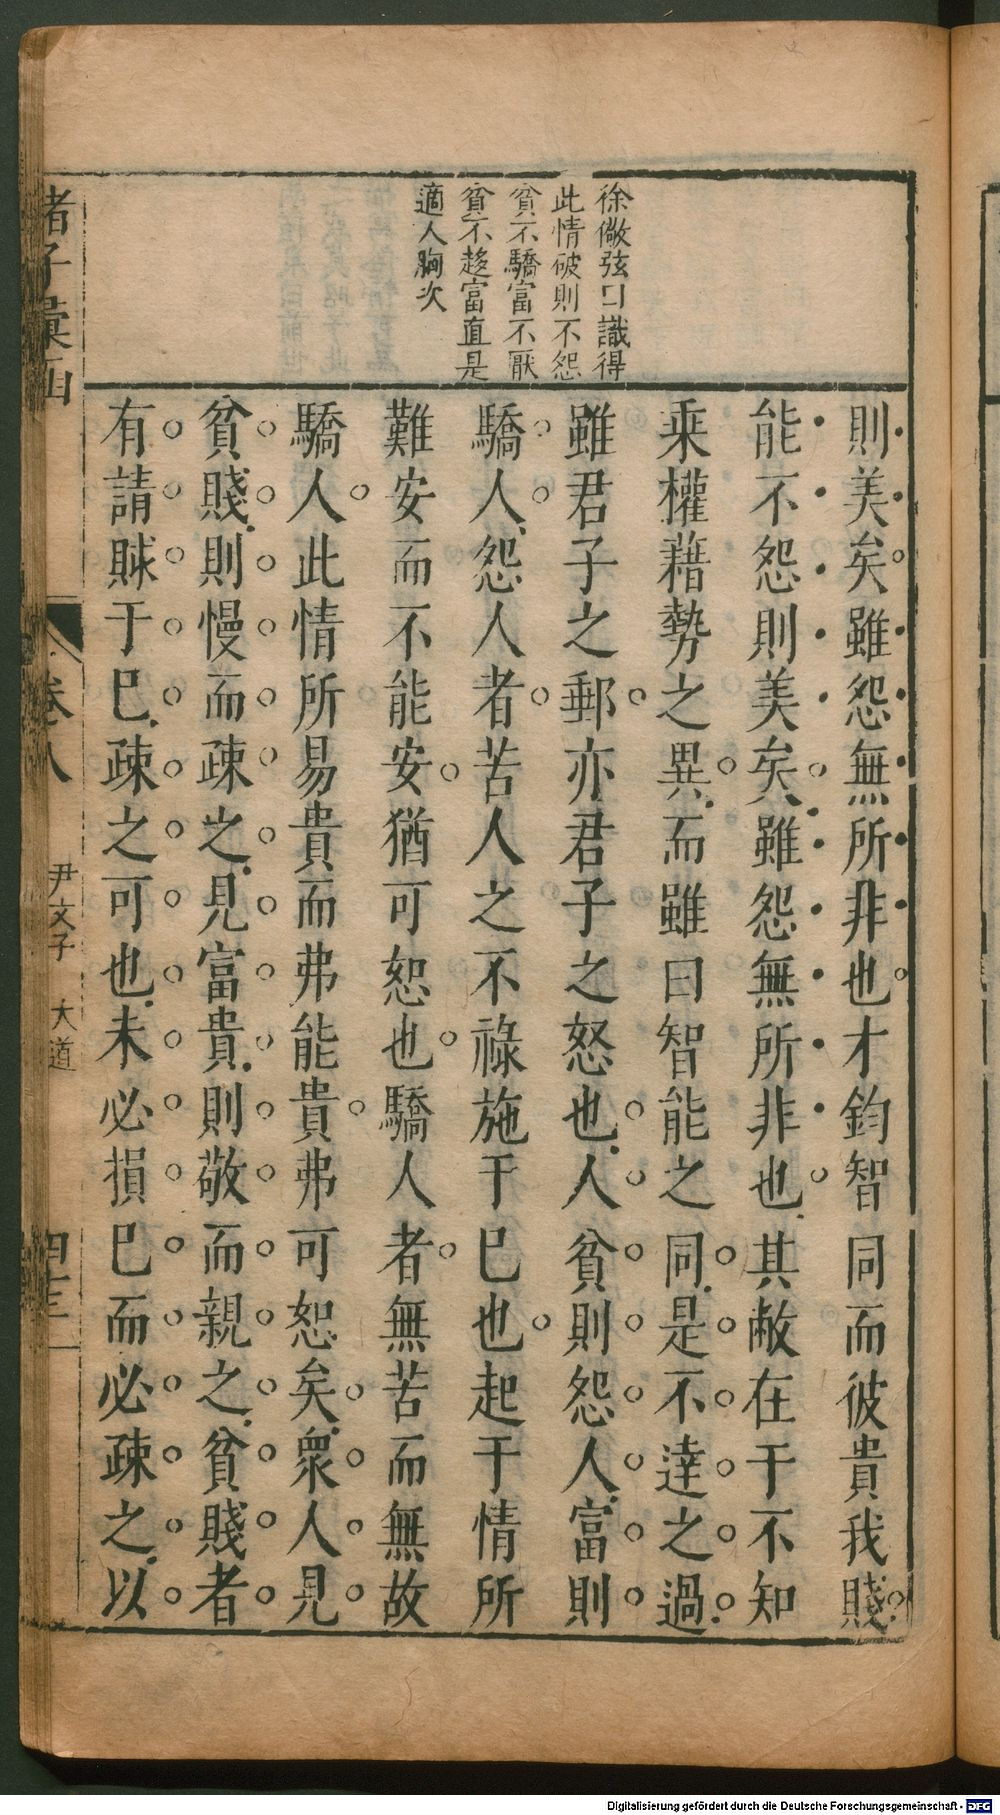 徐儆弦曰識得
此情破則不怨
貧不驕富不厭
貧不趍富直是
適人胸次
則美矣雖怨無所非也才鈞智同而彼貴我賤
能不怨則美矣雖怨無所非也其敝在于不知
乘權藉勢之異而雖曰智能之同是不達之過
雖君子之郵亦君子之怒也人貧則怨人富則
驕人怨人者苦人之不祿施于巳也起于情所
難安而不能安猶可恕也驕人者無苦而無故
驕人此情所易貴而弗能貴弗可恕矣衆人見
貧賤則慢而疎之見富貴則敬而親之貧賤者
有請賕于巳疎之可也未必損巳而必疎之以
諸子彙函
卷八
尹文子 大道
四十三
Digitalisierung gefördert durch die Deutsche Forschungsgemeinschaft - DFG